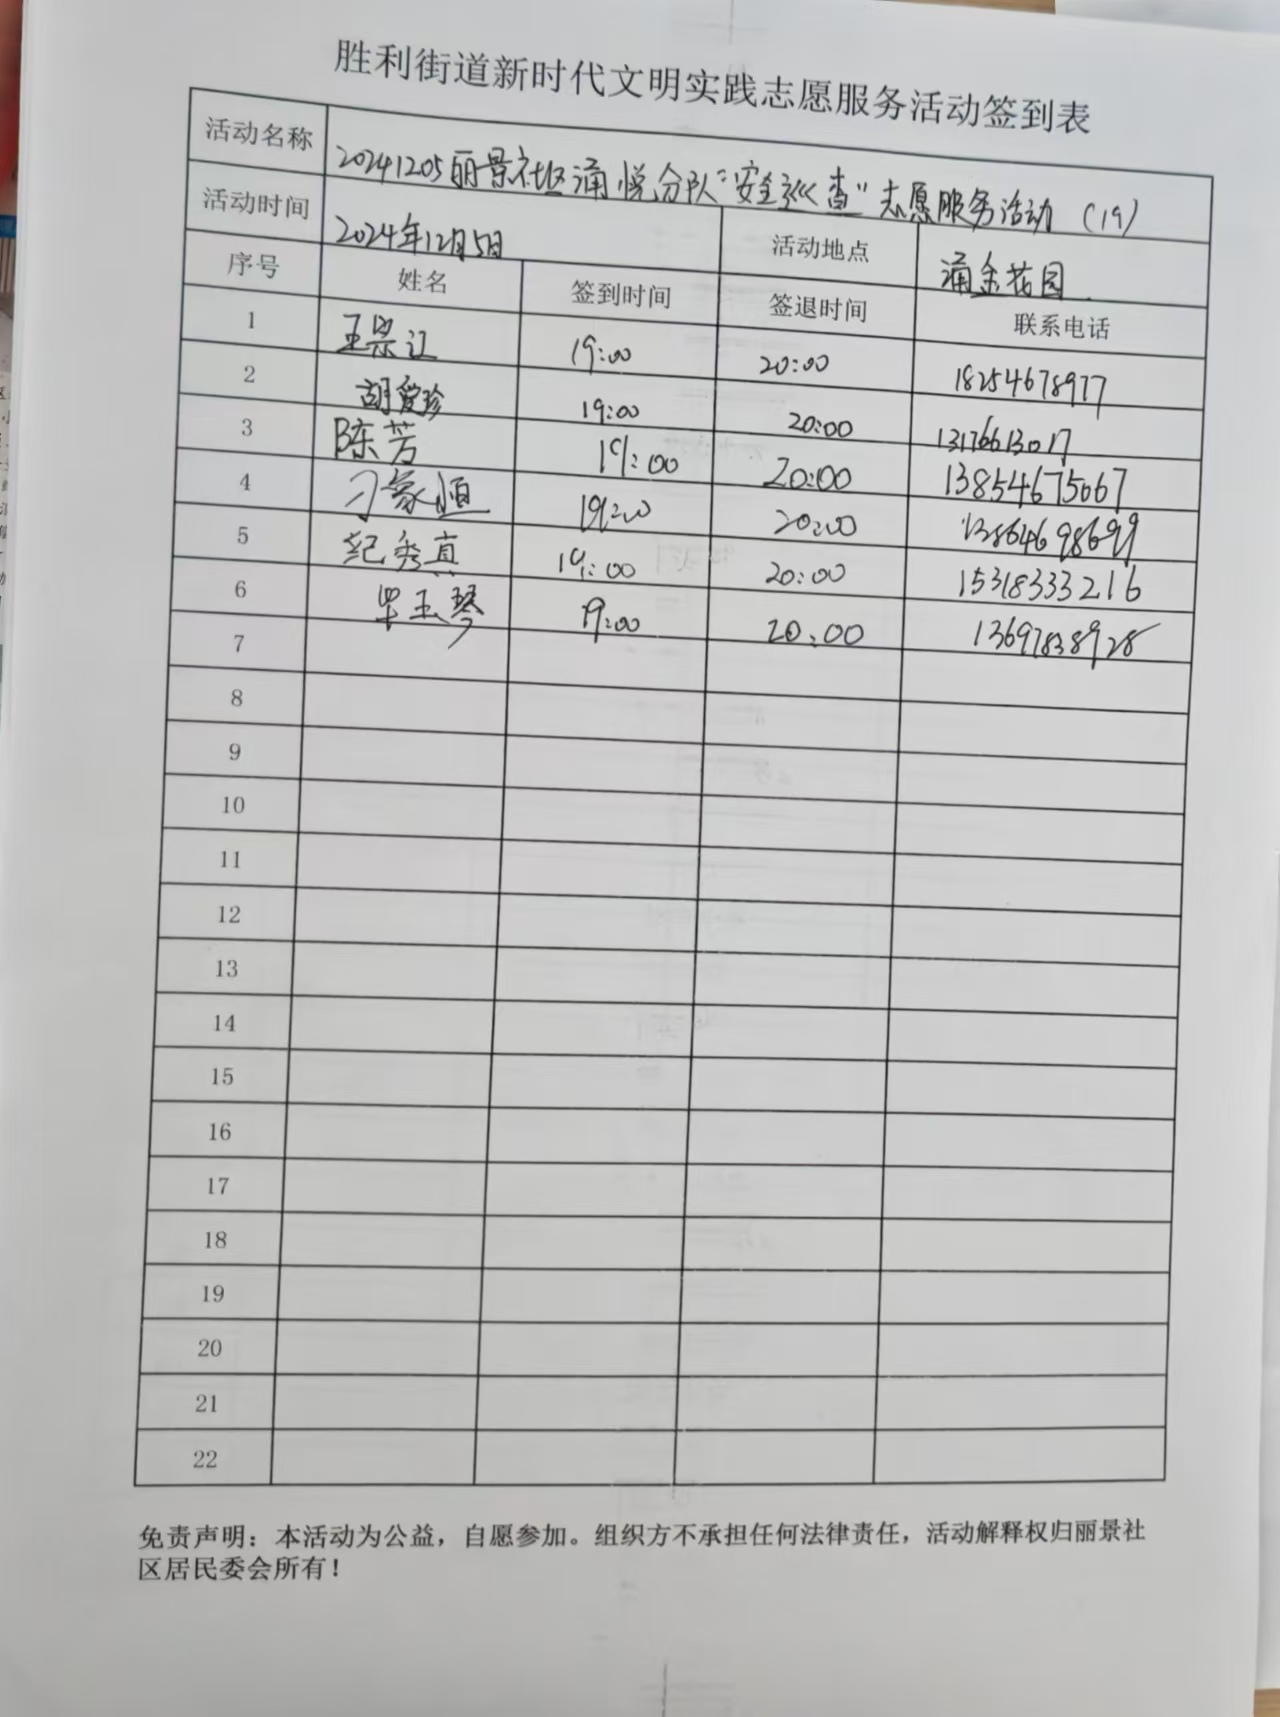 胜利街道新时代文明实践志愿服务活动签到表
活动名称 20241205丽景社区涌悦分队“安全巡查”志愿服务活动（19）
活动时间 2024年12月5日 活动地点 涌金花园
序号 姓名 签到时间 签退时间 联系电话
1 王崇江 19:00 20:00 18254678977
2 胡爱珍 19:00 20:00 13176613017
3 陈芳 19:00 20:00 13854675667
4 刁象恒 19:00 20:00 13864698699
5 纪秀真 19:00 20:00 15318333216
6 毕玉琴 19:00 20:00 13697838928
7
8
9
10
11
12
13
14
15
16
17
18
19
20
21
22
免责声明：本活动为公益，自愿参加。组织方不承担任何法律责任，活动解释权归丽景社
区居民委会所有！